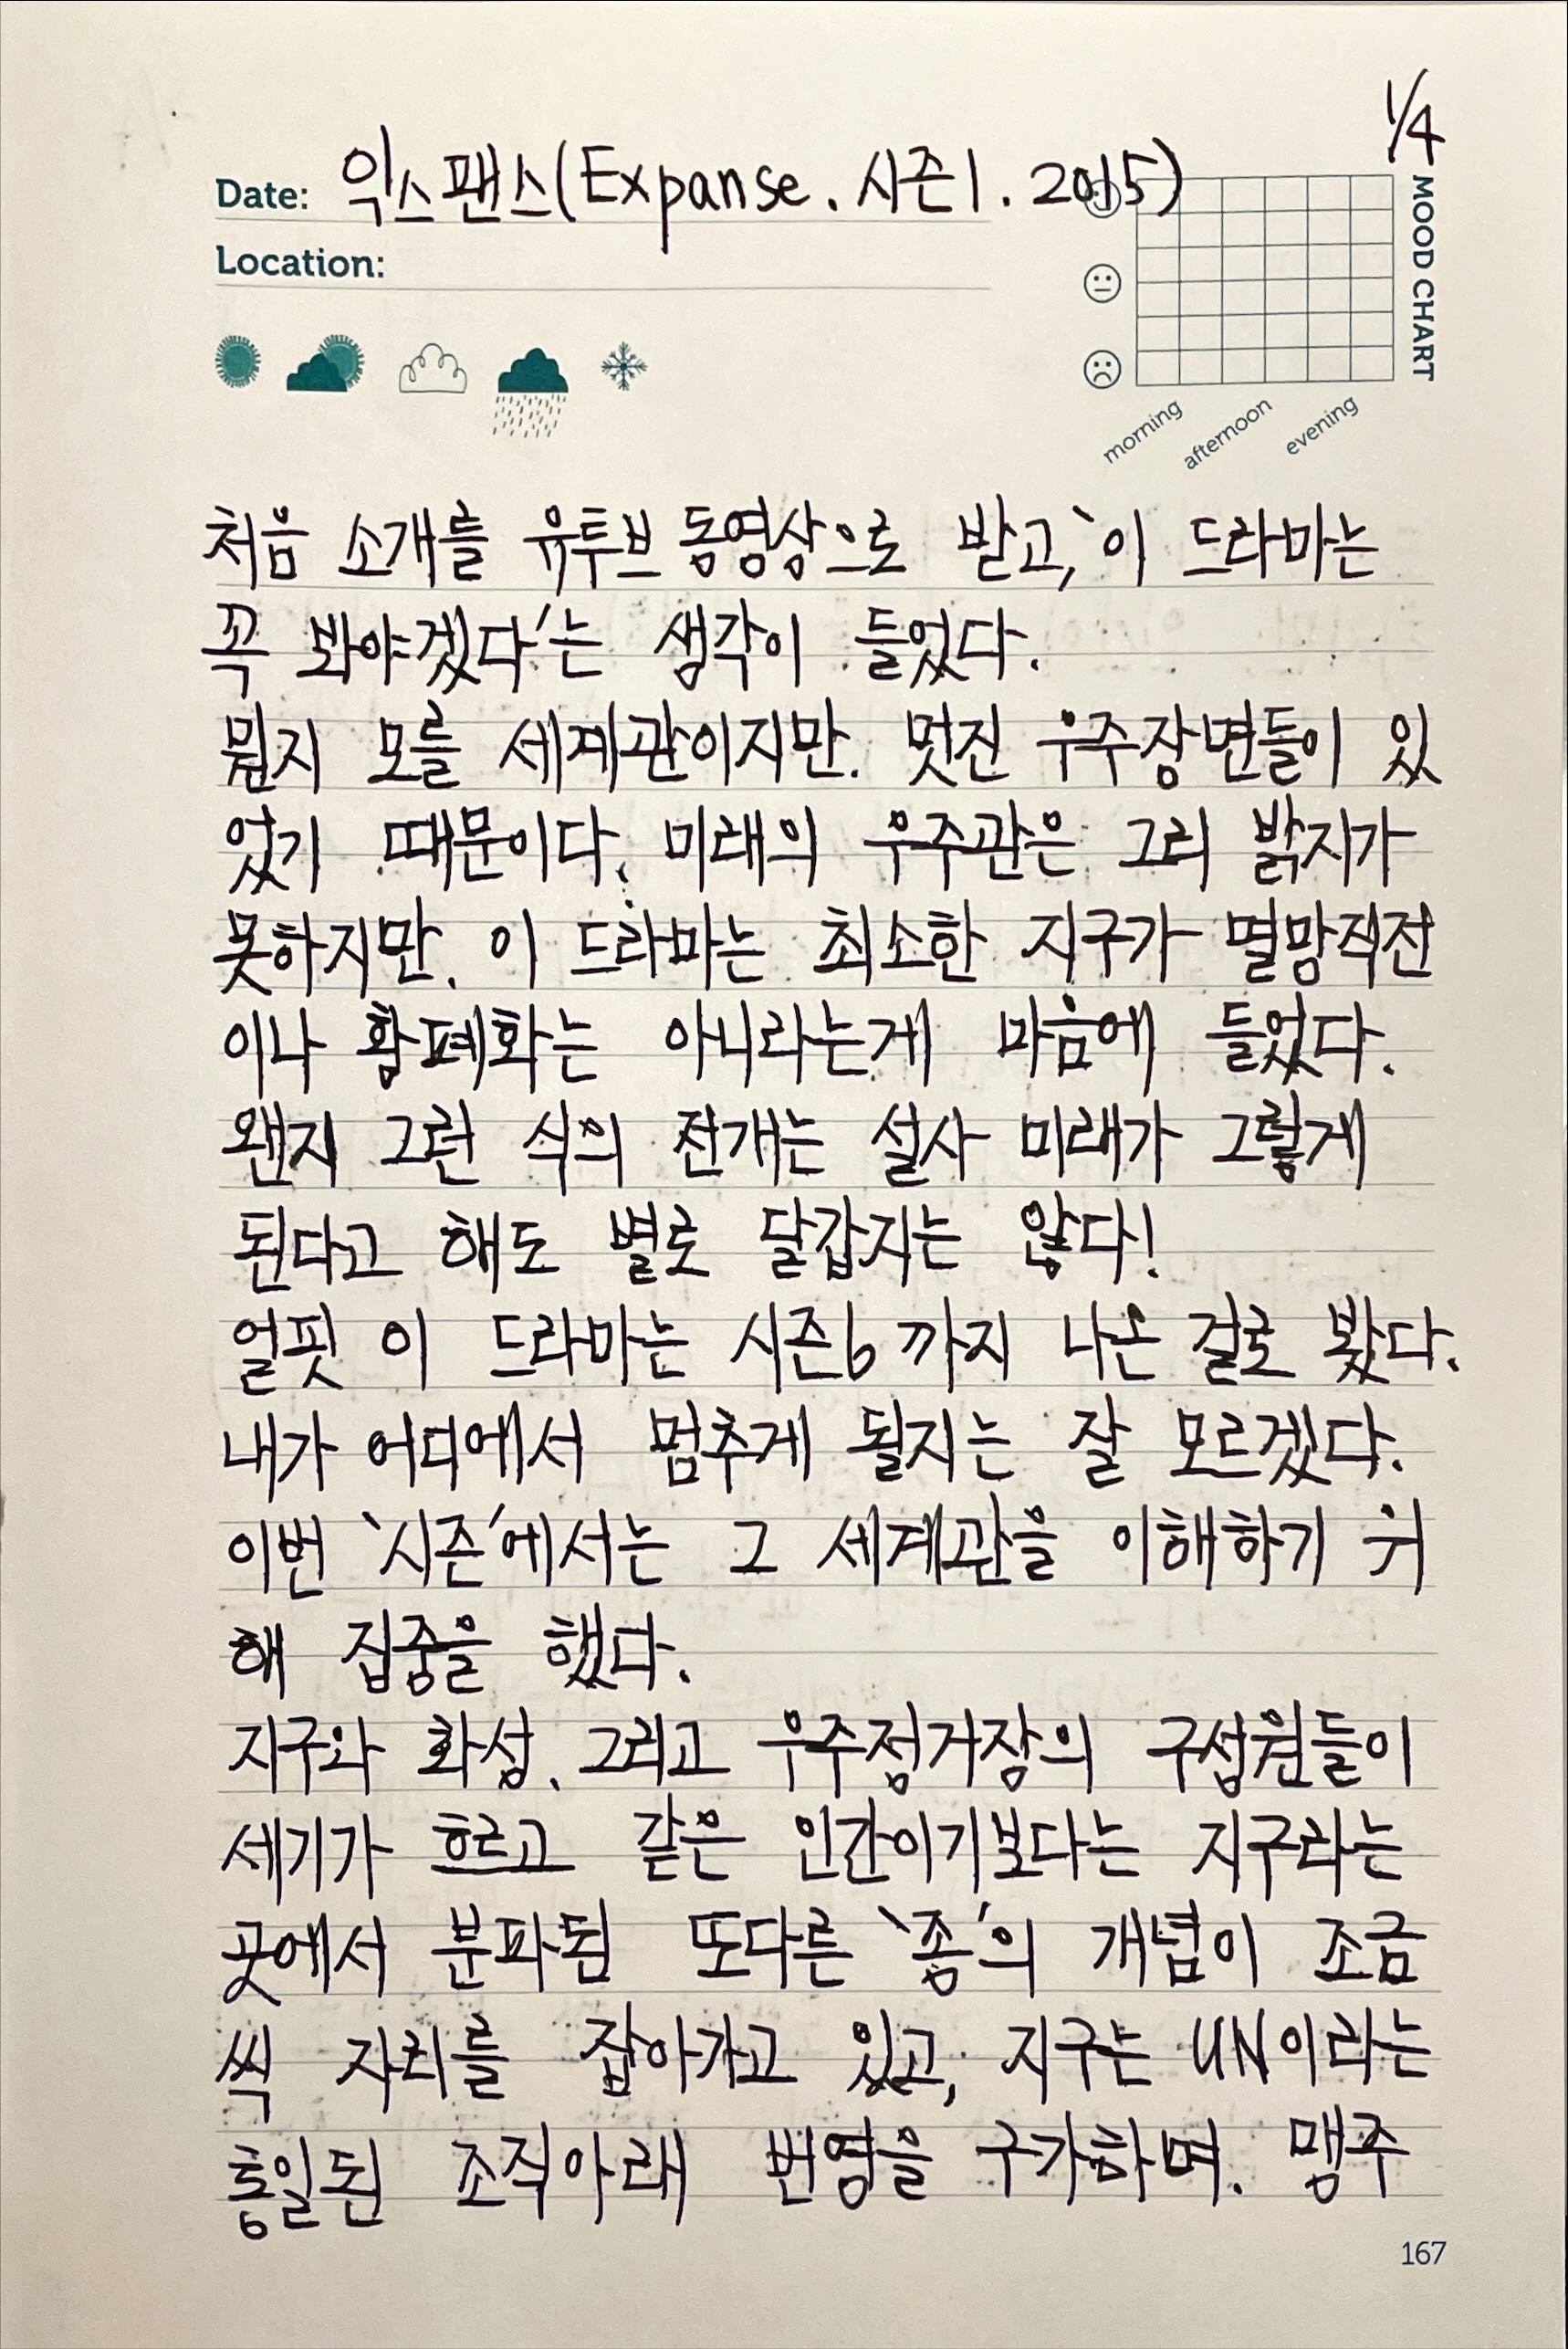 1/4
Date: 익스팬스(Expanse. 시즌1. 2015)
Location:
MOOD CHART
morning afternoon evening
처음 소개를 유투브 동영상으로 받고, '이 드라마는
꼭 봐야겠다'는 생각이 들었다.
뭔지 모를 세계관이지만. 멋진 우주장면들이 있
었기 때문이다. 미래의 우주관은 그리 밝지가
못하지만. 이 드라마는 최소한 지구가 멸망직전
이나 황폐화는 아니라는게 마음에 들었다.
왠지 그런 식의 전개는 설사 미래가 그렇게
된다고 해도 별로 달갑지는 않다!
얼핏 이 드라마는 시즌6까지 나온 걸로 봤다.
내가 어디에서 멈추게 될지는 잘 모르겠다.
이번 '시즌'에서는 그 세계관을 이해하기 위
해 집중을 했다.
지구와 화성. 그리고 우주정거장의 구성원들이
세기가 흐르고 같은 인간이기보다는 지구라는
곳에서 분파된 또다른 '종'의 개념이 조금
씩 자리를 잡아가고 있고, 지구는 UN이라는
통일된 조직아래 번영을 구가하며. 맹주
167